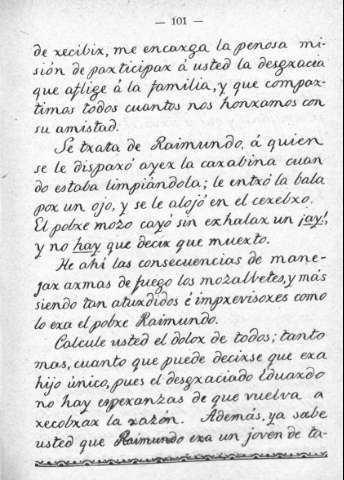 — 101 —
de recibir, me encarga la penosa mi-
sión de participar á usted la desgracia
que aflige á la familia, y que compar-
timos todos cuantos nos honramos con
su amistad.
Se trata de Raimundo, á quien
se le disparó ayer la carabina cuan
do estaba limpiándola; le entró la bala
por un ojo, y se le alojó en el cerebro.
El pobre mozo cayó sin exhalar un ¡ay!,
y no hay que decir que muerto.
He ahí las consecuencias de mane-
jar armas de fuego los mozalbetes, y más
siendo tan aturdidos é imprevisores como
lo era el pobre Raimundo.
Calcule usted el dolor de todos; tanto
mas, cuanto que puede decirse que era
hijo único, pues el desgraciado Eduardo
no hay esperanzas de que vuelva a
recobrar la razón. Además, ya sabe
usted que Raimundo era un joven de ta-